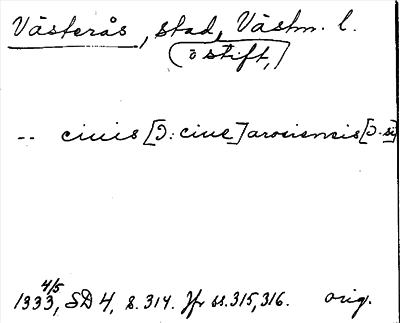 Västerås, stad, Västm. l.
o stift,
-- ciuis [ɔ: ciue] arosiensis [ɔ. si]
1333 4/5, SD 4, s. 314. Jfr ss. 315, 316. orig.